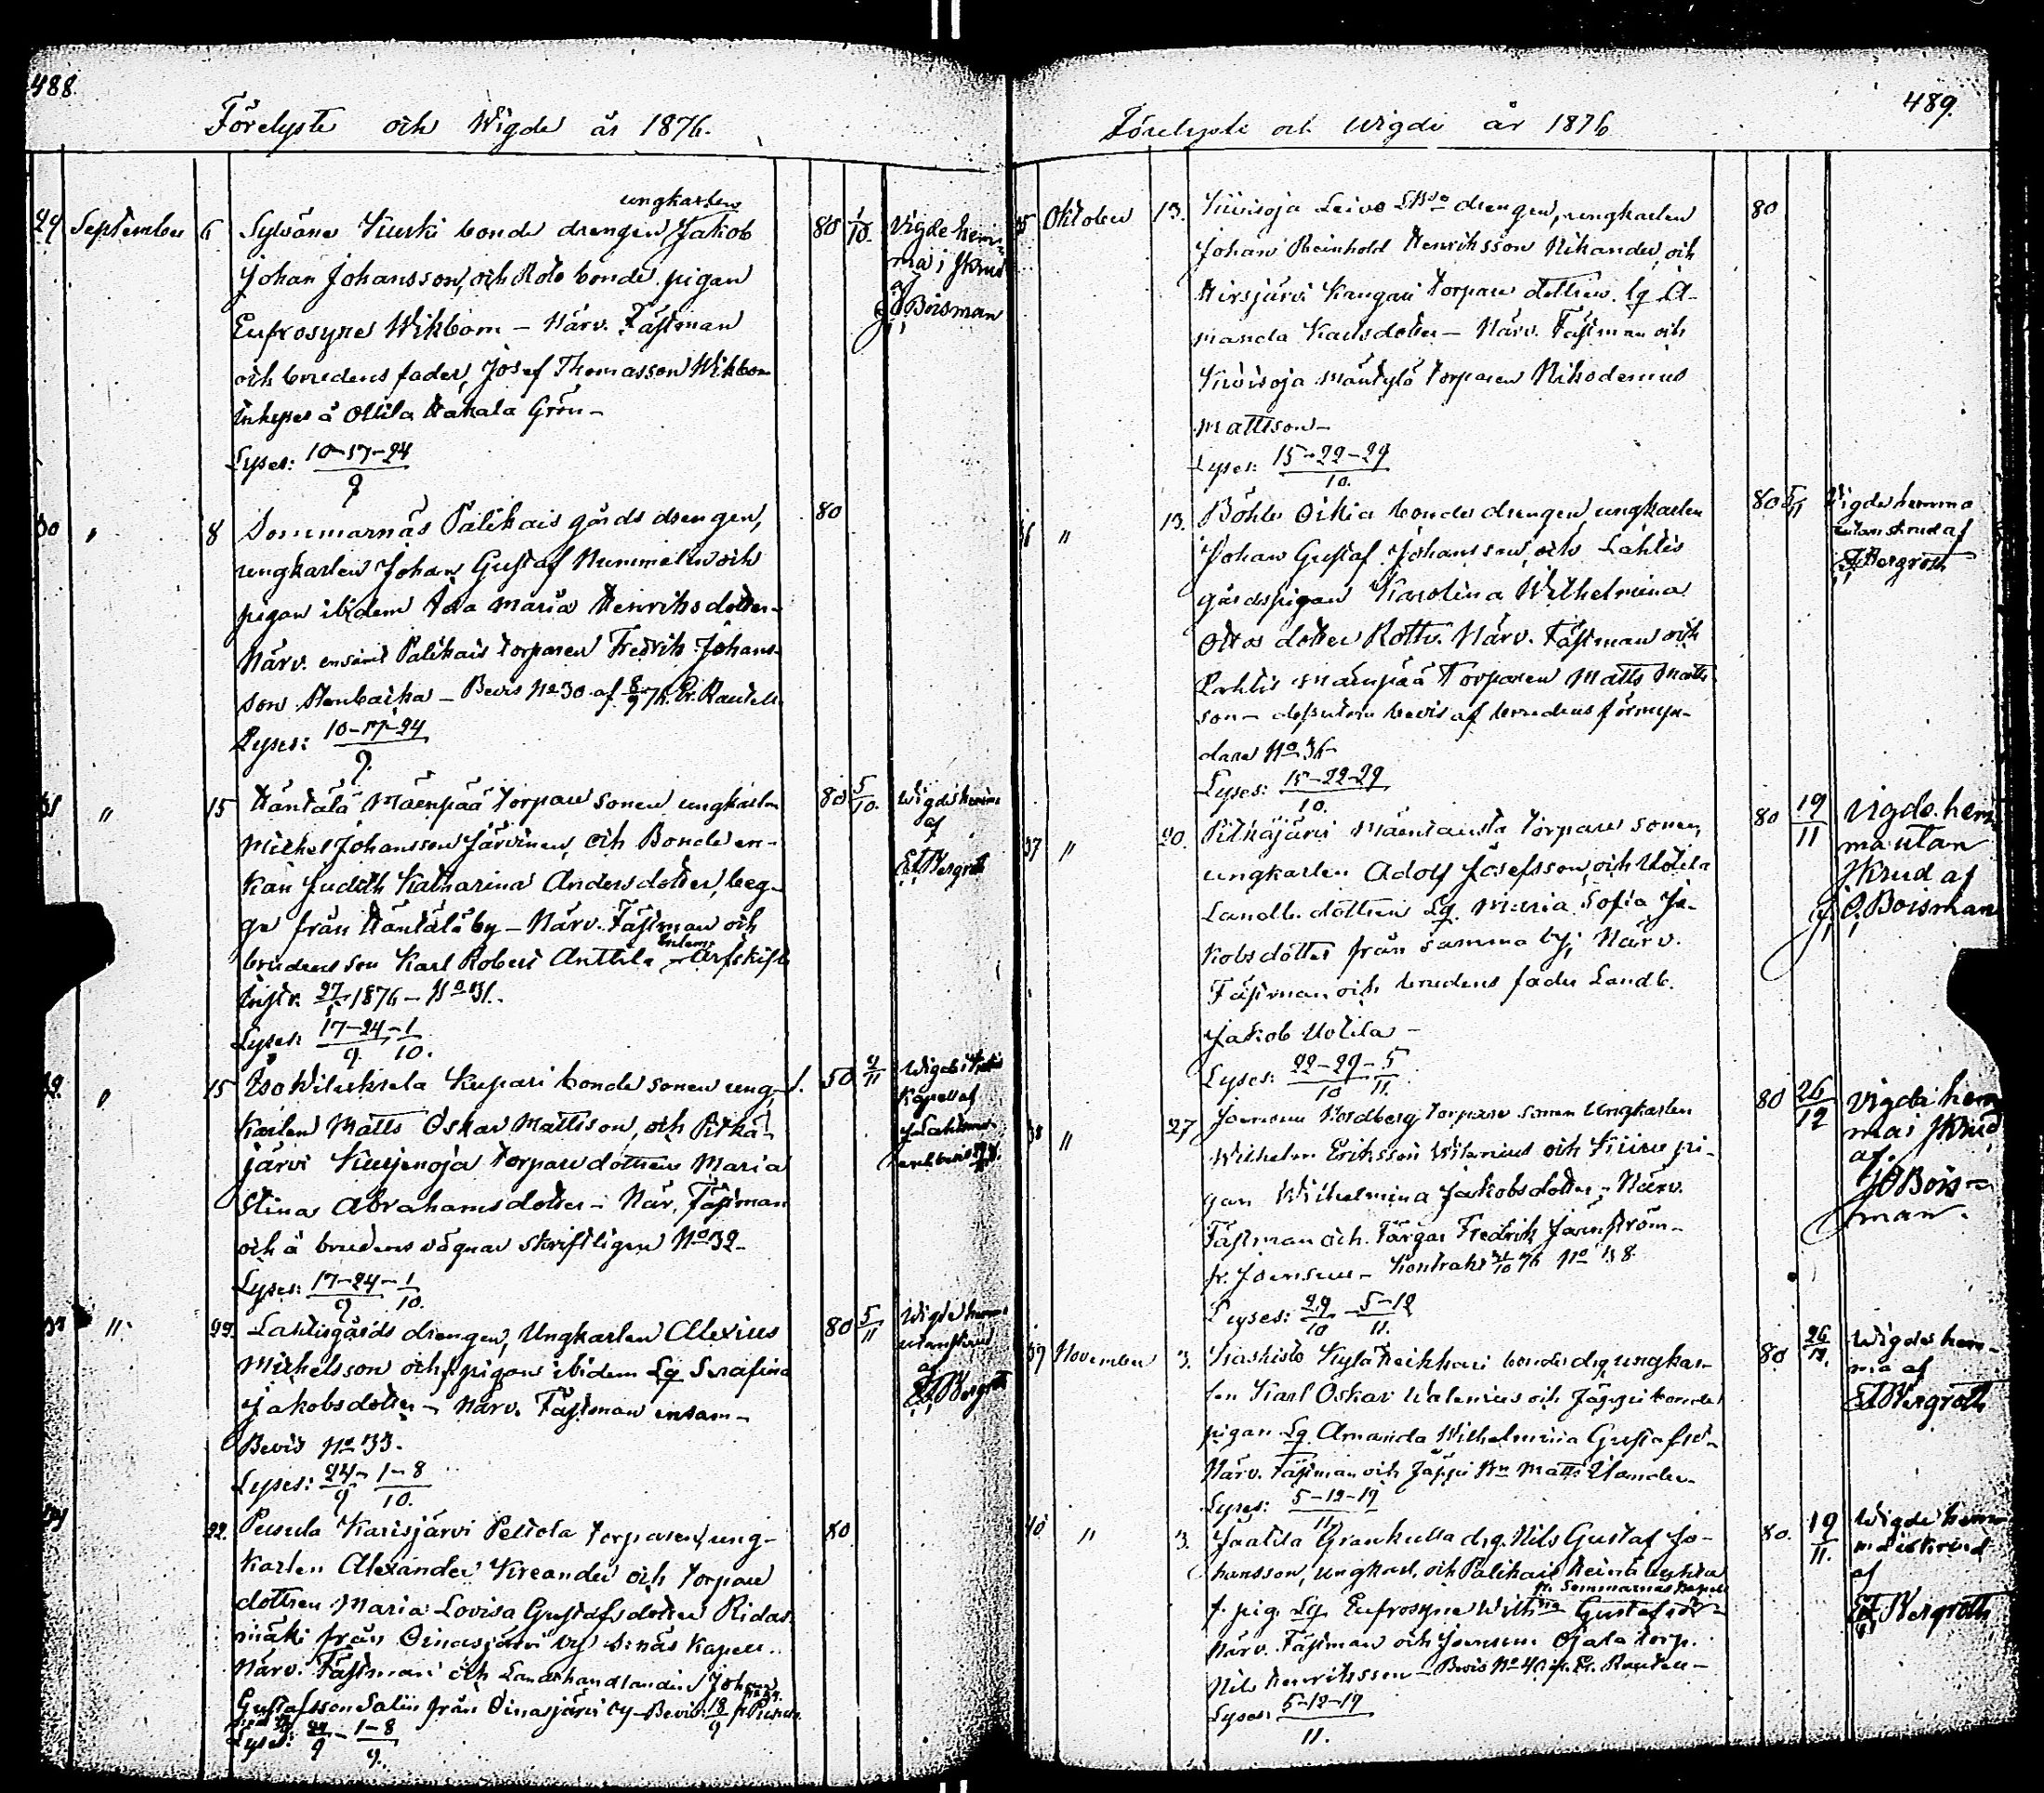 488.
Förelyste och Wigde år 1876.
29 September 6
ungkarlen
Sylväne Kurki bonde drengen, Jakob
Johan Johansson, och Koto bonde pigan
Eufrosyne Wikbom – Närv. Fästman
och brudens fader, Josef Thomasson Wikbom
inhyses å Ottila Hakala Grön –
Lyses: 10–17–24
9
80 1/10. Vigde hem-
ma i Skrud
af
J O Boisman
30 " 8 Sommarnäs Palikais gårds drengen,
ungkarlen Johan Gustaf Nummelin och
pigan ibidem Eva Maria Henriksdotter –
Närv. ensamt Palikais torparen Fredrik Johans-
son Stenbacka – Bevis No 30 af 8/9 76. Er. Rautell.
Lyses: 10–17–24
9.
80
31 " 15 Häntälä Mäenpää torpare sonen ungkarlen
Michel Johansson Järvinen, och Bonde en-
kan Judith Katharina Andersdotter, beg-
ge från Häntälä by – Närv. Fästman och
brudens son Karl Robert Anttila – Arfskifts
Instr. 27/ 1876 – No 31.
Lyses: 17–24–1
9. 10.
80 5/10. Wigde hemma
af
E A Bergroth
32. " 15 Iso Wiluksela Kupari bonde sonen ung-
karlen Matts Oskar Mattsson, och Pitkä-
järvi Kurjenoja torpare dottren Maria
Stina Abrahamsdotter – Närv. Fästman
och å brudens vägnar skriftligen No 32 –
Lyses: 17–24–1
9 10.
50 /11 Wigde i
Kapell af
33 " 22. Lahtisgårds drengen, Ungkarlen Alexius
Michelsson och pigan ibidem Lg Serafina
Jakobsdotter – Närv. Fästman ensam –
Bevis No 33.
Lyses: 24–1–8
9 10.
80 5/11 Wigde hemma
utan skrud
af
E A Bergroth
34 22. Pusula Karisjärvi Peltola torparen, ung-
karlen Alexander Kreander och torpare
dottren Maria Lovisa Gustafsdotter Ridas-
mäki från Oinasjärvi by S:näs Kapell.
Närv. Fästman och Landthandlanden Johan
Gustafsson Salin från Oinasjärvi by – Bevis 18/9 fr Pusula
Lyses: 24–1–8
9 9.
80
489.
Förelyste och Wigde år 1876
35 Oktober 13. Kivisoja Leivo drengen, ungkarlen
Johan Reinhold Henriksson Nikander, och
Hirsjärvi Kangari torpare dottren Lg A-
manda Karlsdotter – Närv. Fästman och
Kivisoja Mäntylä torparen Nikodemus
Mattsson –
Lyses: 15–22–29
10.
80
36 " 13. Böhle Oikia bonde drengen ungkarlen
Johan Gustaf Johansson, och Lahtis
gårdspigan Karolina Wilhelmina
Ottos dotter Rothv. Närv. Fästman och
Lahtis Mäenpää Torparen Matts Matts-
son – dessutom bevis af brudens förmyn-
dare No 36
Lyses: 15–22–29
10.
80 5/11 Vigde hemma
utan skrud af
E A Bergroth
37 " 20. Pitkäjärvi Mäentausta torpare sonen,
ungkarlen Adolf Josefsson, och Uotila
Landb. dottren Lg Maria Sofia Ja-
kobsdotter från samma by; Närv.
Fästman och brudens fader Landb.
Jakob Uotila –
Lyses: 22–29–5
10 11.
80 19/11 Vigde hem-
ma utan
Skrud af
J. O. Boisman
38 " 27 Joensuu Nordberg torpare sonen Ungkarlen
Wilhelm Eriksson Wilenius och Kiiru pi-
gan Wilhelmina Jakobsdotter – Närv.
Fästman och Färgar Fredrik Järnström –
fr. Joensuu – Kontrakt 21/10 76 No 38
Lyses: 29–5–12
10 11.
80 26/12 Vigde hem-
ma i Skrud
af
J O Bois-
man.
39 November 3. Kaskisto Kylä Heikkari bonde drg ungkar-
len Karl Oskar Walenius och Jäppi bonde
pigan Lg Amanda Wilhelmina Gustafsd –
Närv. Fästman och Jäppi Bn Matts Ulander –
Lyses: 5–12–19
11.
80 26/12. Wigde hem-
ma af
E A Bergroth
40 " 3. Jaatila Grankulla drg. Nils Gustaf Jo-
hansson, ungkarl, och Palikais Heinä Lyhta
fr. Sommarnäs Kapell
f. pig. Lg Eufrosyne Wilh:na Gustafsdr –
Närv. Fästman och Joensuu Ojala torp.
Nils Henriksson – Bevis No 40 af Er. Rautell –
Lyses: 5–12–19
11.
80. 19/11. Wigde hem-
af
E A Bergroth